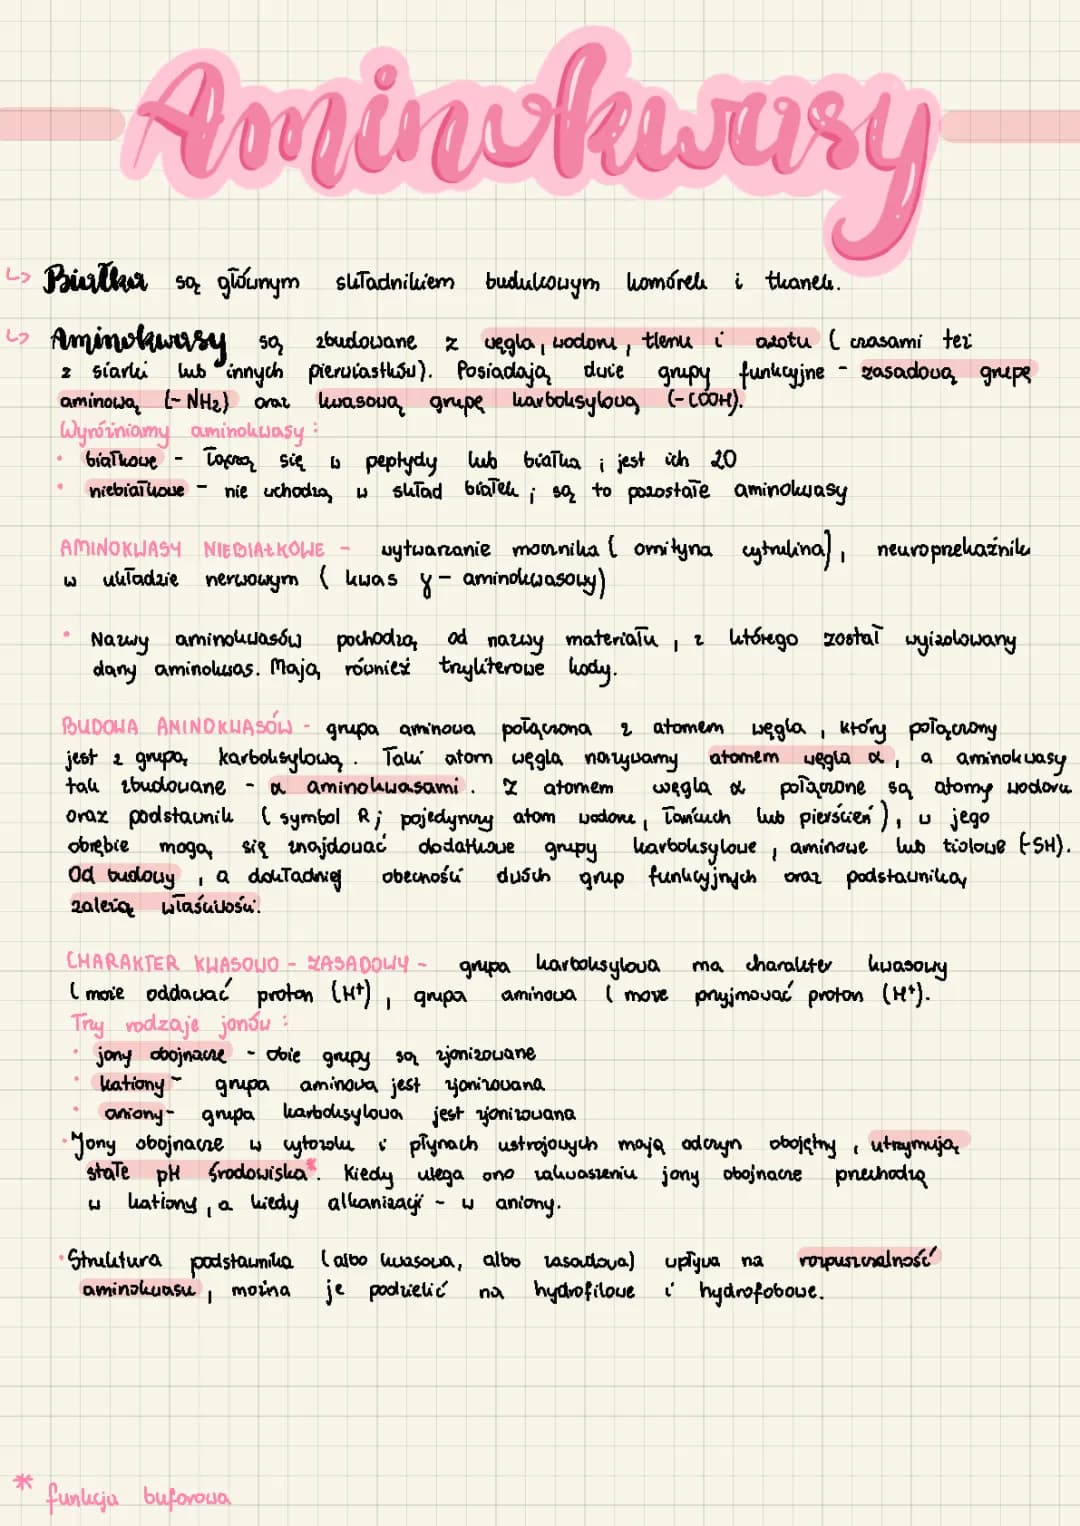 Aminokwasy
↳ Białka są głównym składnikiem budulcowym komórek i tkanek.
↳ Aminokwasy są zbudowane z węgla, wodoru, tlenu i azotu ( czasami też
z siarki lub innych pierwiastków). Posiadają dwie grupy funkcyjne - zasadową grupę
aminową (-NH₂) oraz kwasową grupę karboksylową (-COOH).
Wyróżniamy aminokwasy :
• białkowe - łączą się w peptydy lub białka ; jest ich 20
• niebiałkowe - nie wchodzą w skład białek ; są to pozostałe aminokwasy
AMINOKWASY NIEBIAŁKOWE - wytwarzanie mocznika ( ornityna cytrulina), neuroprzekaźnik
w układzie nerwowym ( kwas γ - aminokwasowy)
• Nazwy aminokwasów pochodzą od nazwy materiału , z którego został wyizolowany
dany aminokwas. Mają również trzyliterowe kody.
BUDOWA AMINOKWASÓW - grupa aminowa połączona z atomem węgla , który połączony
jest z grupą karboksylową . Taki atom węgla nazywamy atomem węgla α , a aminokwasy
tak zbudowane - α aminokwasami . Z atomem węgla α połączone są atomy wodoru
oraz podstawnik ( symbol R ; pojedynczy atom wodoru, łańcuch lub pierścień ) , w jego
obrębie mogą się znajdować dodatkowe grupy karboksylowe , aminowe lub tiolowe (-SH).
Od budowy , a dokładniej obecności dwóch grup funkcyjnych oraz podstawnika,
zależą właściwości.
CHARAKTER KWASOWO - ZASADOWY - grupa karboksylowa ma charakter kwasowy
( może oddawać proton (H⁺) , grupa aminowa ( może przyjmować proton (H⁺).
Trzy rodzaje jonów :
• jony obojnacze - obie grupy są zjonizowane
• kationy - grupa aminowa jest zjonizowana
• aniony - grupa karboksylowa jest zjonizowana
• Jony obojnacze w cytozolu i płynach ustrojowych mają odczyn obojętny , utrzymują
stałe pH środowiska*. Kiedy ulega ono zakwaszeniu jony obojnacze przechodzą
w kationy , a kiedy alkanizacji - w aniony.
• Struktura podstawnika ( albo kwasowa, albo zasadowa) wpływa na rozpuszczalność
aminokwasu , można je podzielić na hydrofilowe i hydrofobowe.
* funkcja buforowa